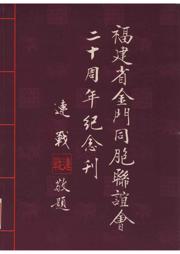 福建省金門同胞聯誼會
二十周年紀念刊
連戰
敬題